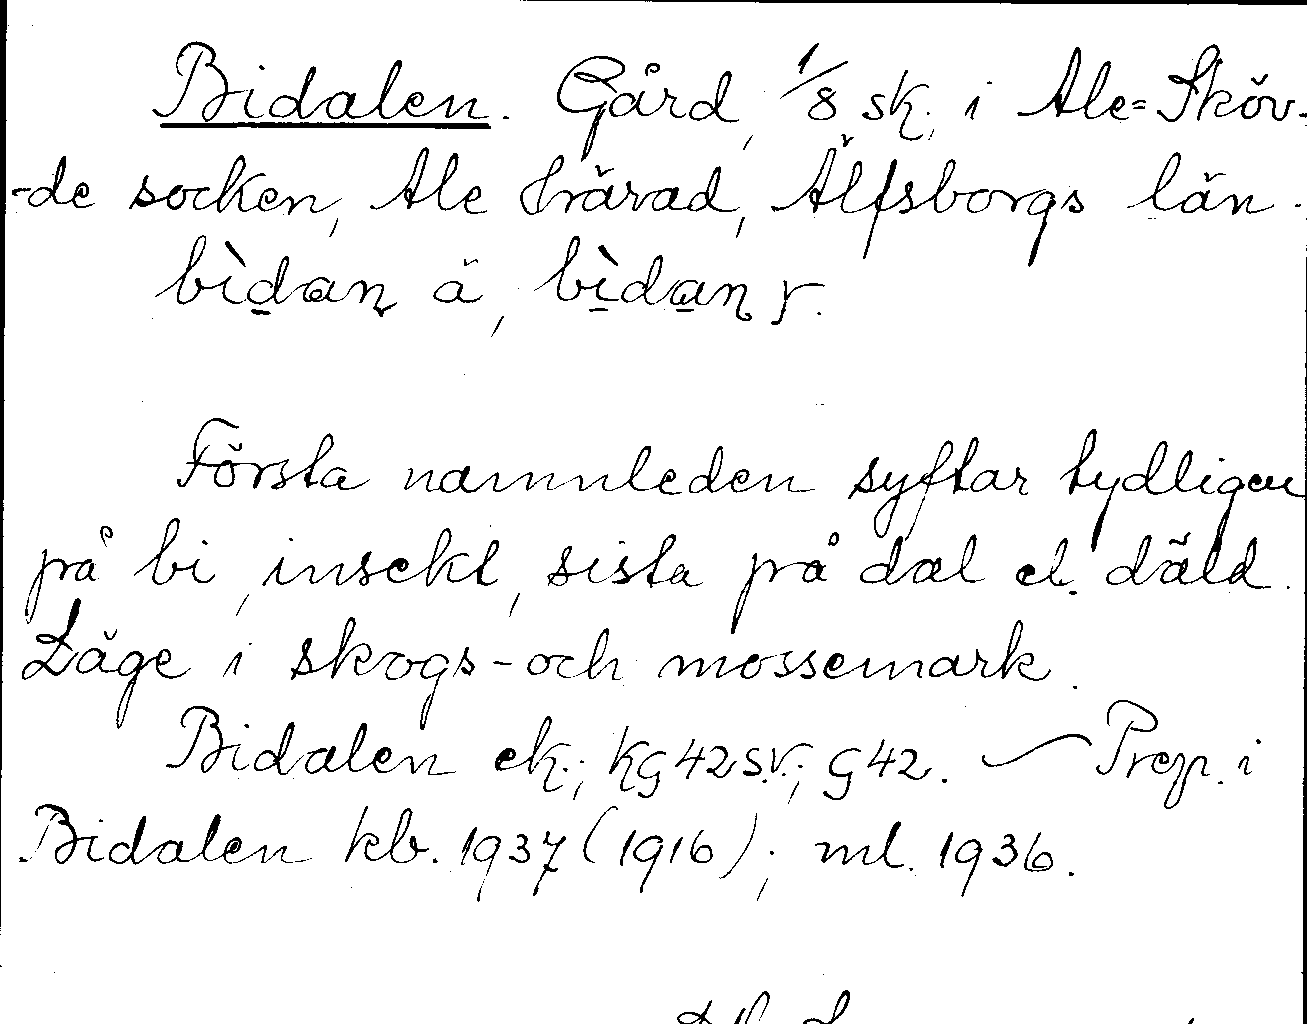 Bidalen. Gård, 1/8 sk. i Ale=Sköv-
-de socken, Ale härad, Älfsborgs län.
bìdan ä, bìdan y.
Första namnleden syftar tydligen
på bi, insekt, sista på dal el. däld.
Läge i skogs-och mossemark.
Bidalen ek.; KG42SV.; G42. — Prep. i
Bidalen kb. 1937 (1916); ml. 1936.